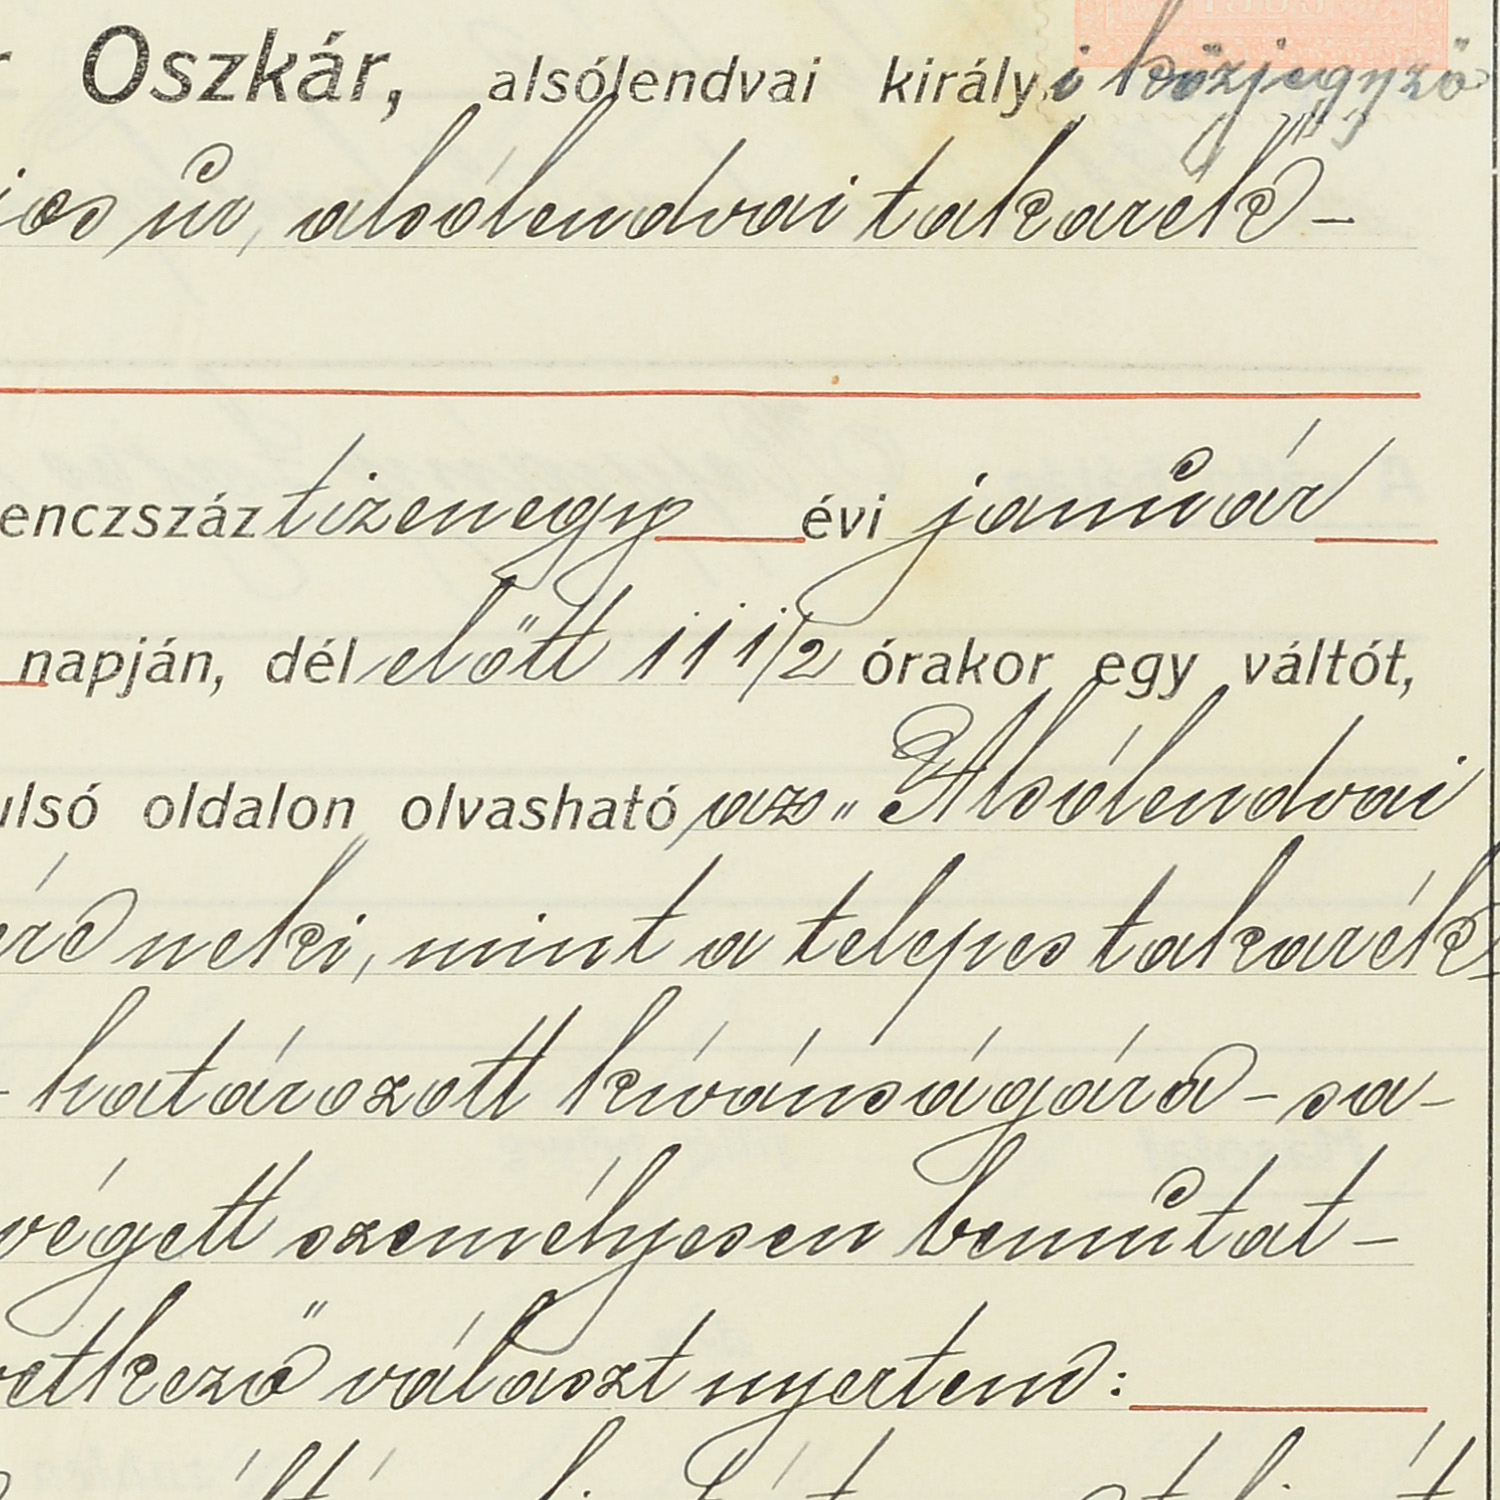 r Oszkár, alsólendvai királyi közjegyző
ios úr, alsólendvai takarék-
enczszáz tizenegy évi január
napján, dél előtt 11 1/2 órakor egy váltót,
ulsó oldalon olvasható az „Alsólendvai
neki, mint a telepes takarék-
- határozott kívánságára - sa-
végett személyesen bemutat-
vetkező választ nyertem: